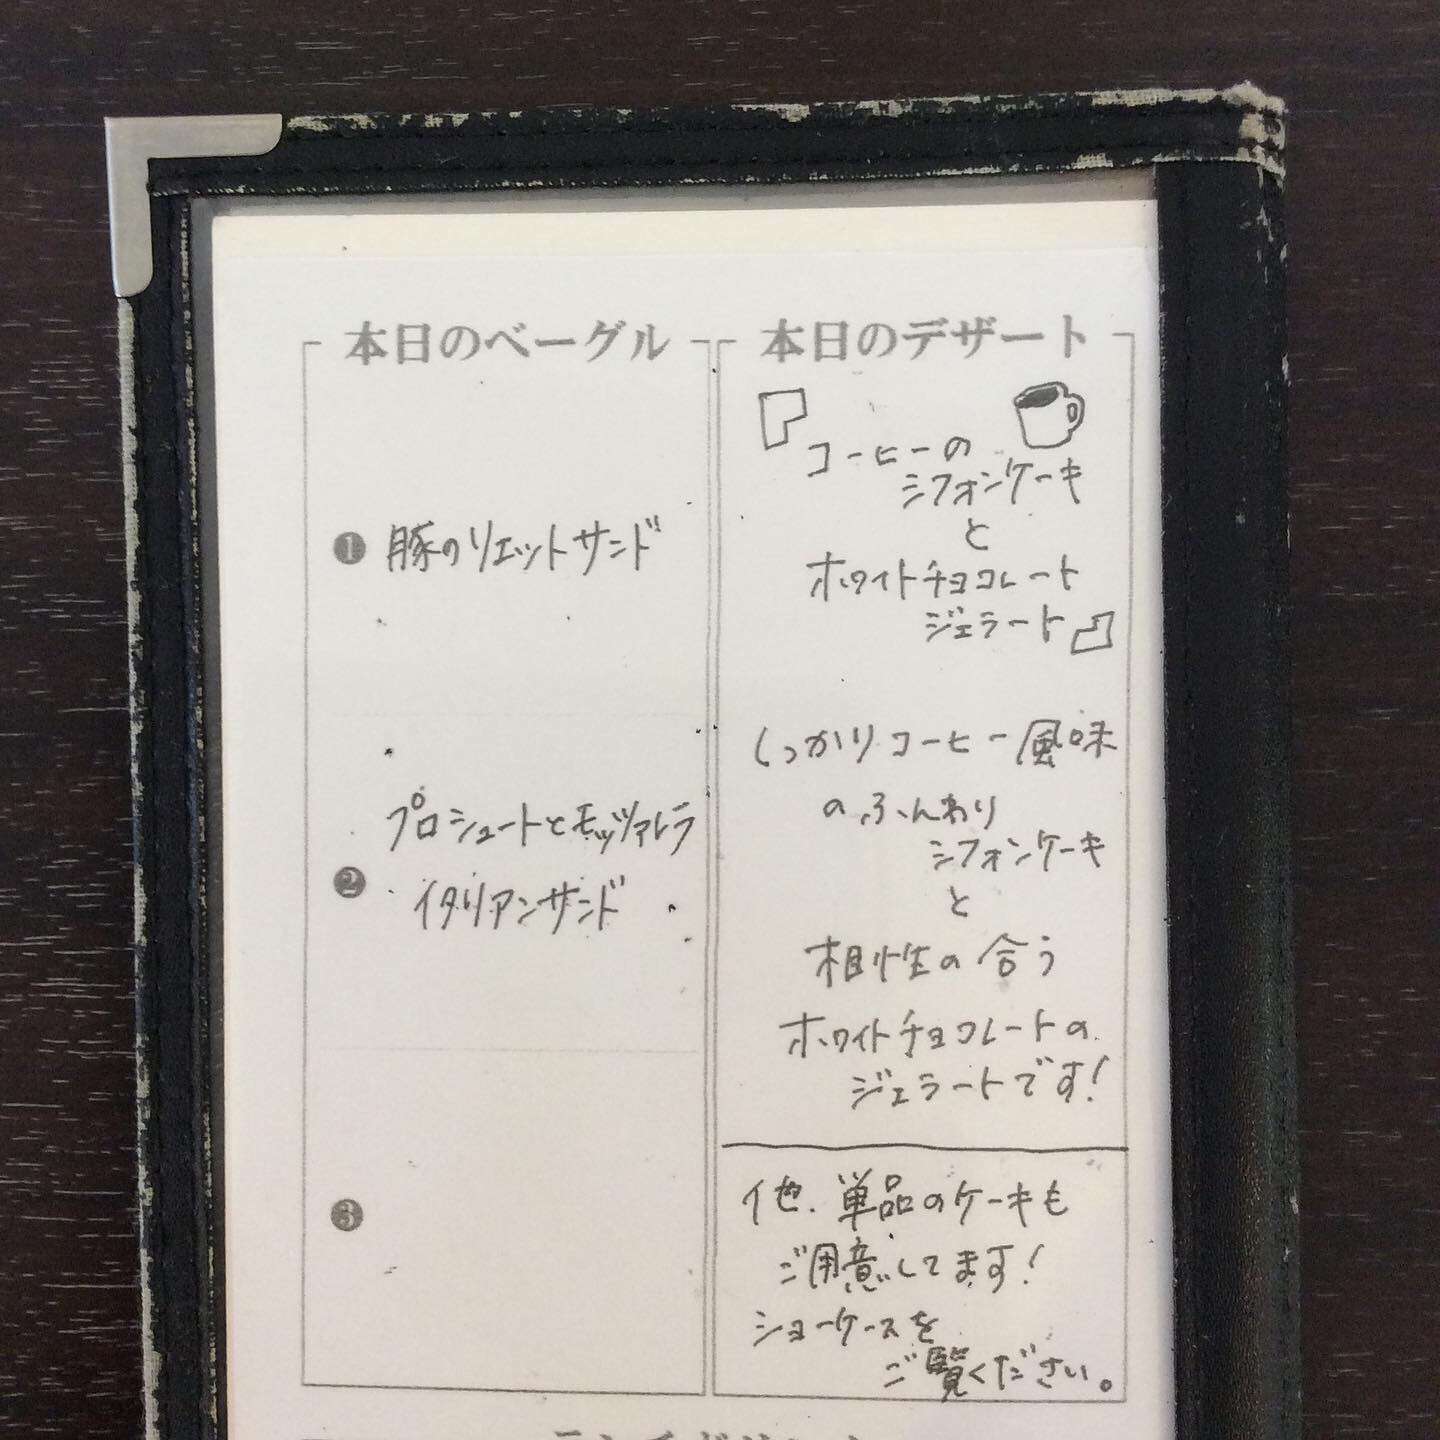 本日のベーグル
❶ 豚のリエットサンド
プロシュートとモッツァレラ
❷ イタリアンサンド
❸
本日のデザート
『コーヒーの
シフォンケーキ
と
ホワイトチョコレート
ジェラート』
しっかりコーヒー風味
のふんわり
シフォンケーキ
と
相性の合う
ホワイトチョコレートの
ジェラートです!
他、単品のケーキも
ご用意してます!
ショーケースを
ご覧ください。